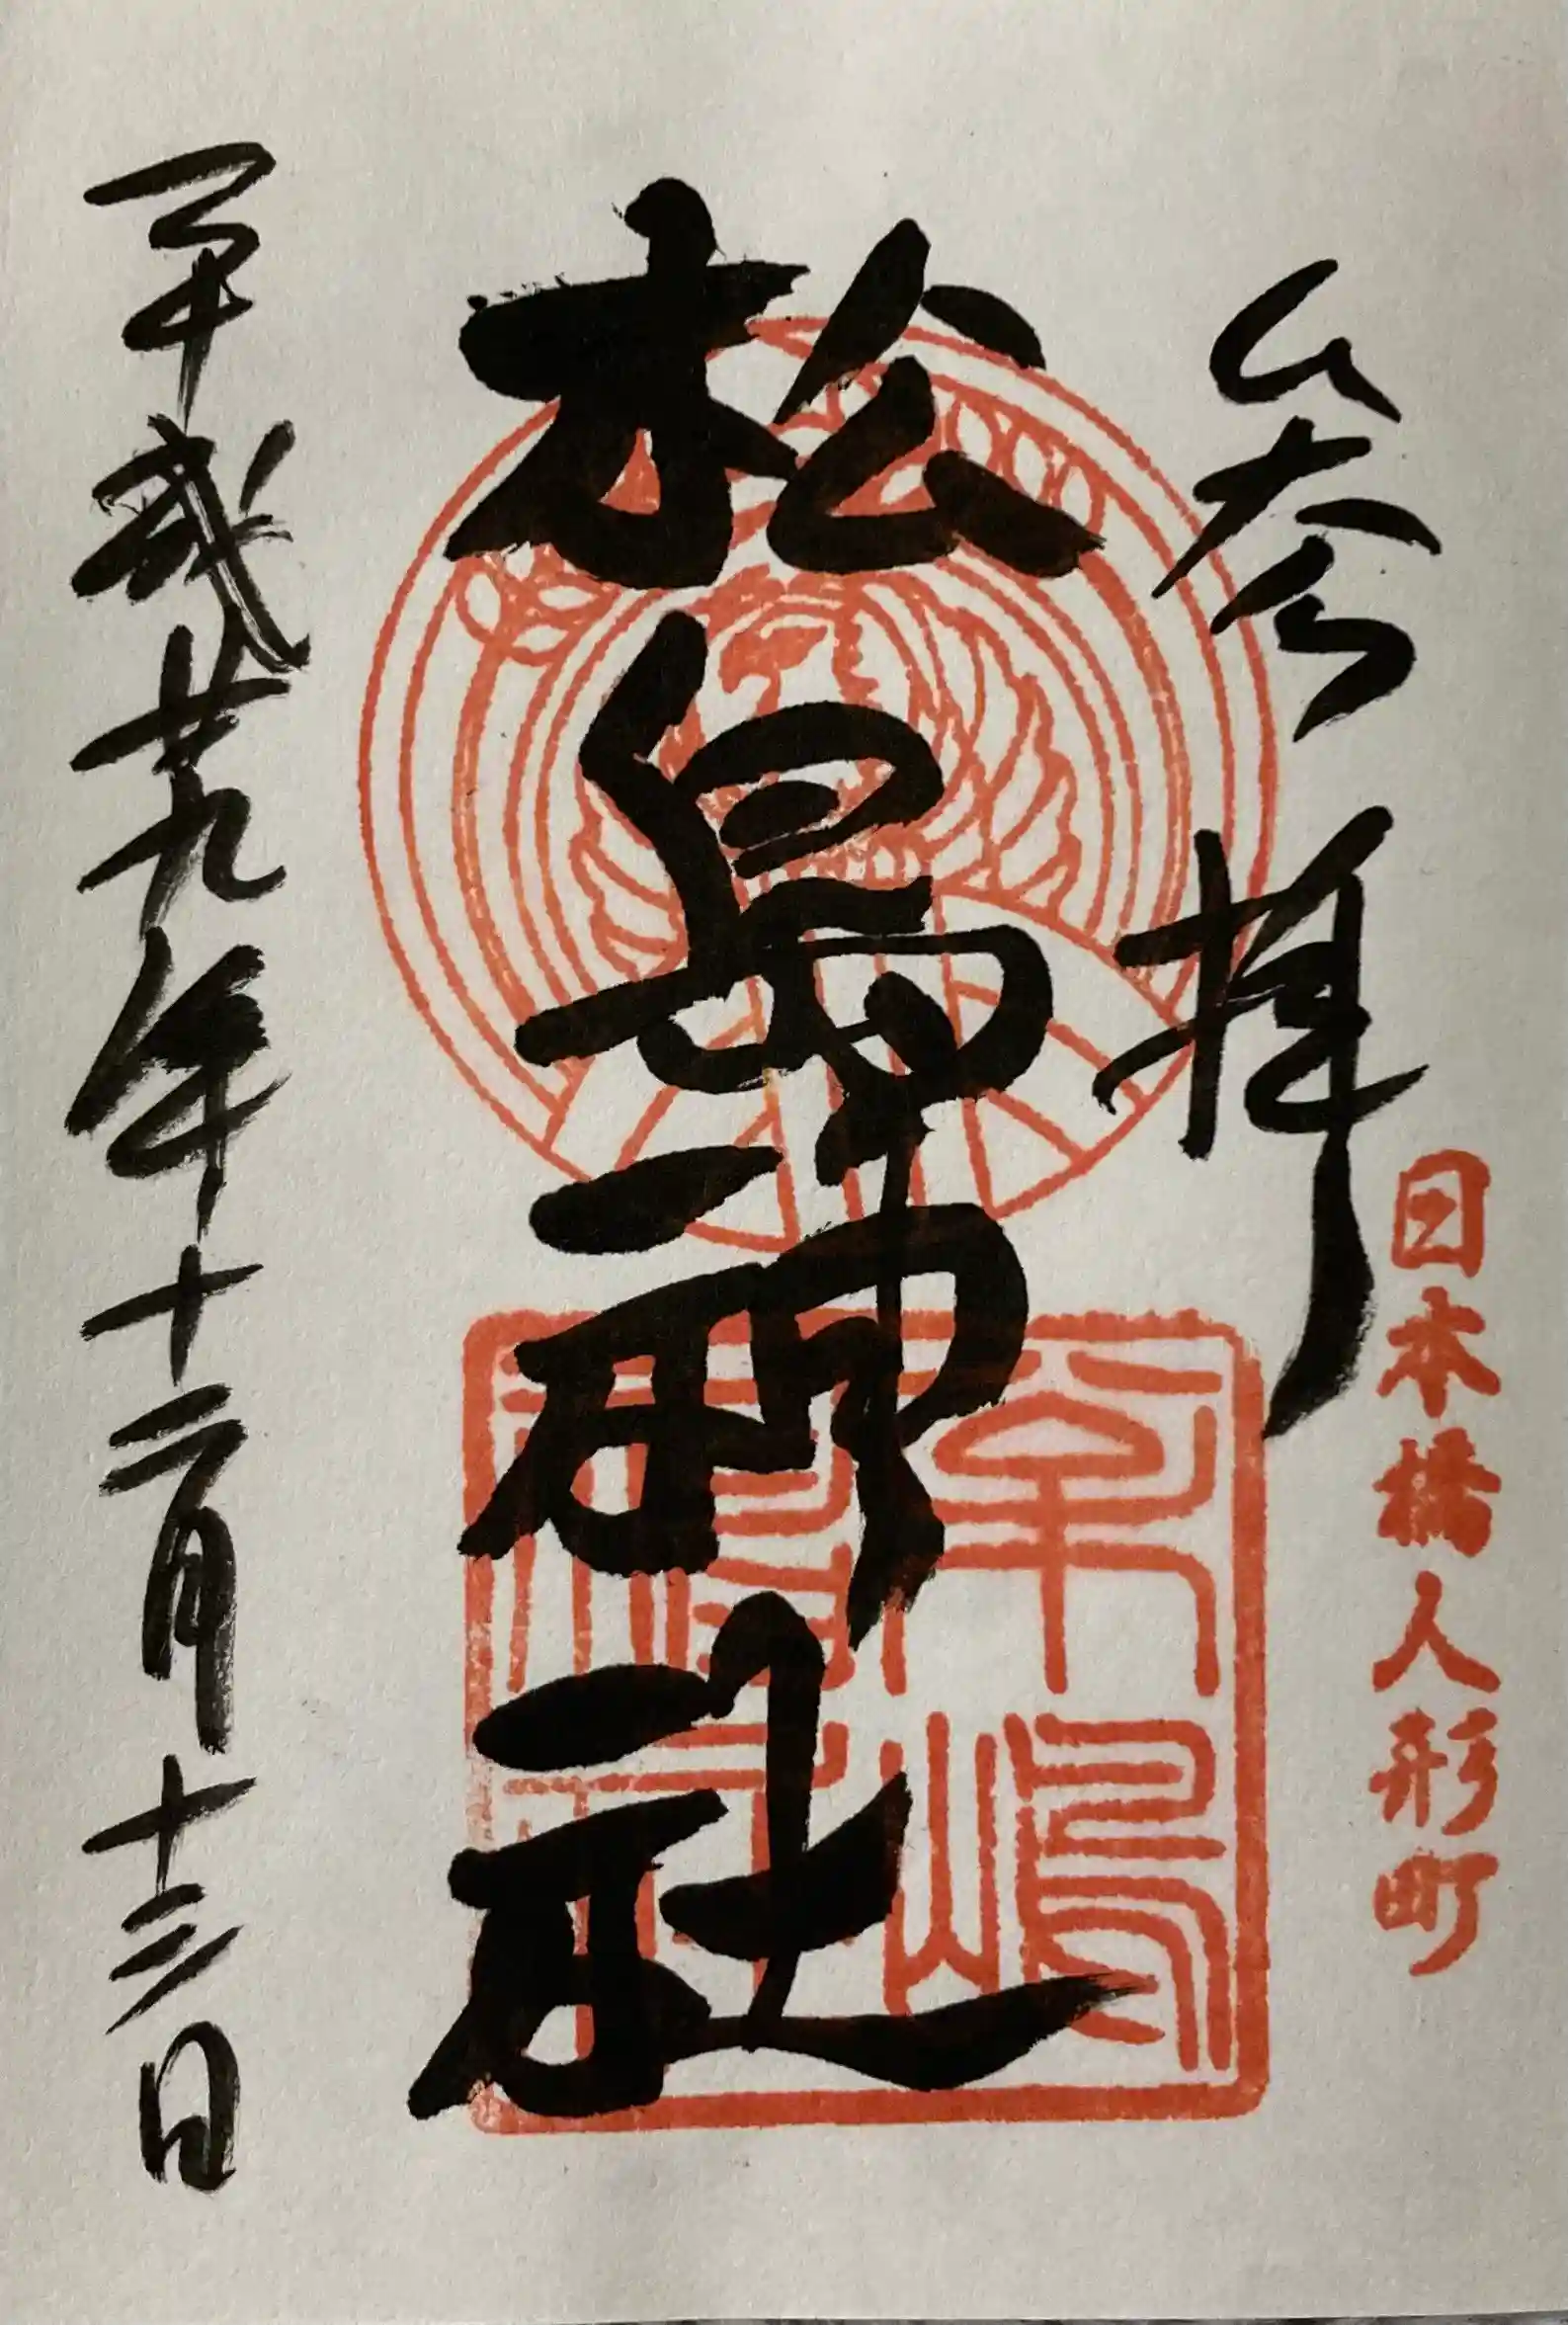 日本橋人形町
参拝
松島神社
平成廿九年十二月十三日